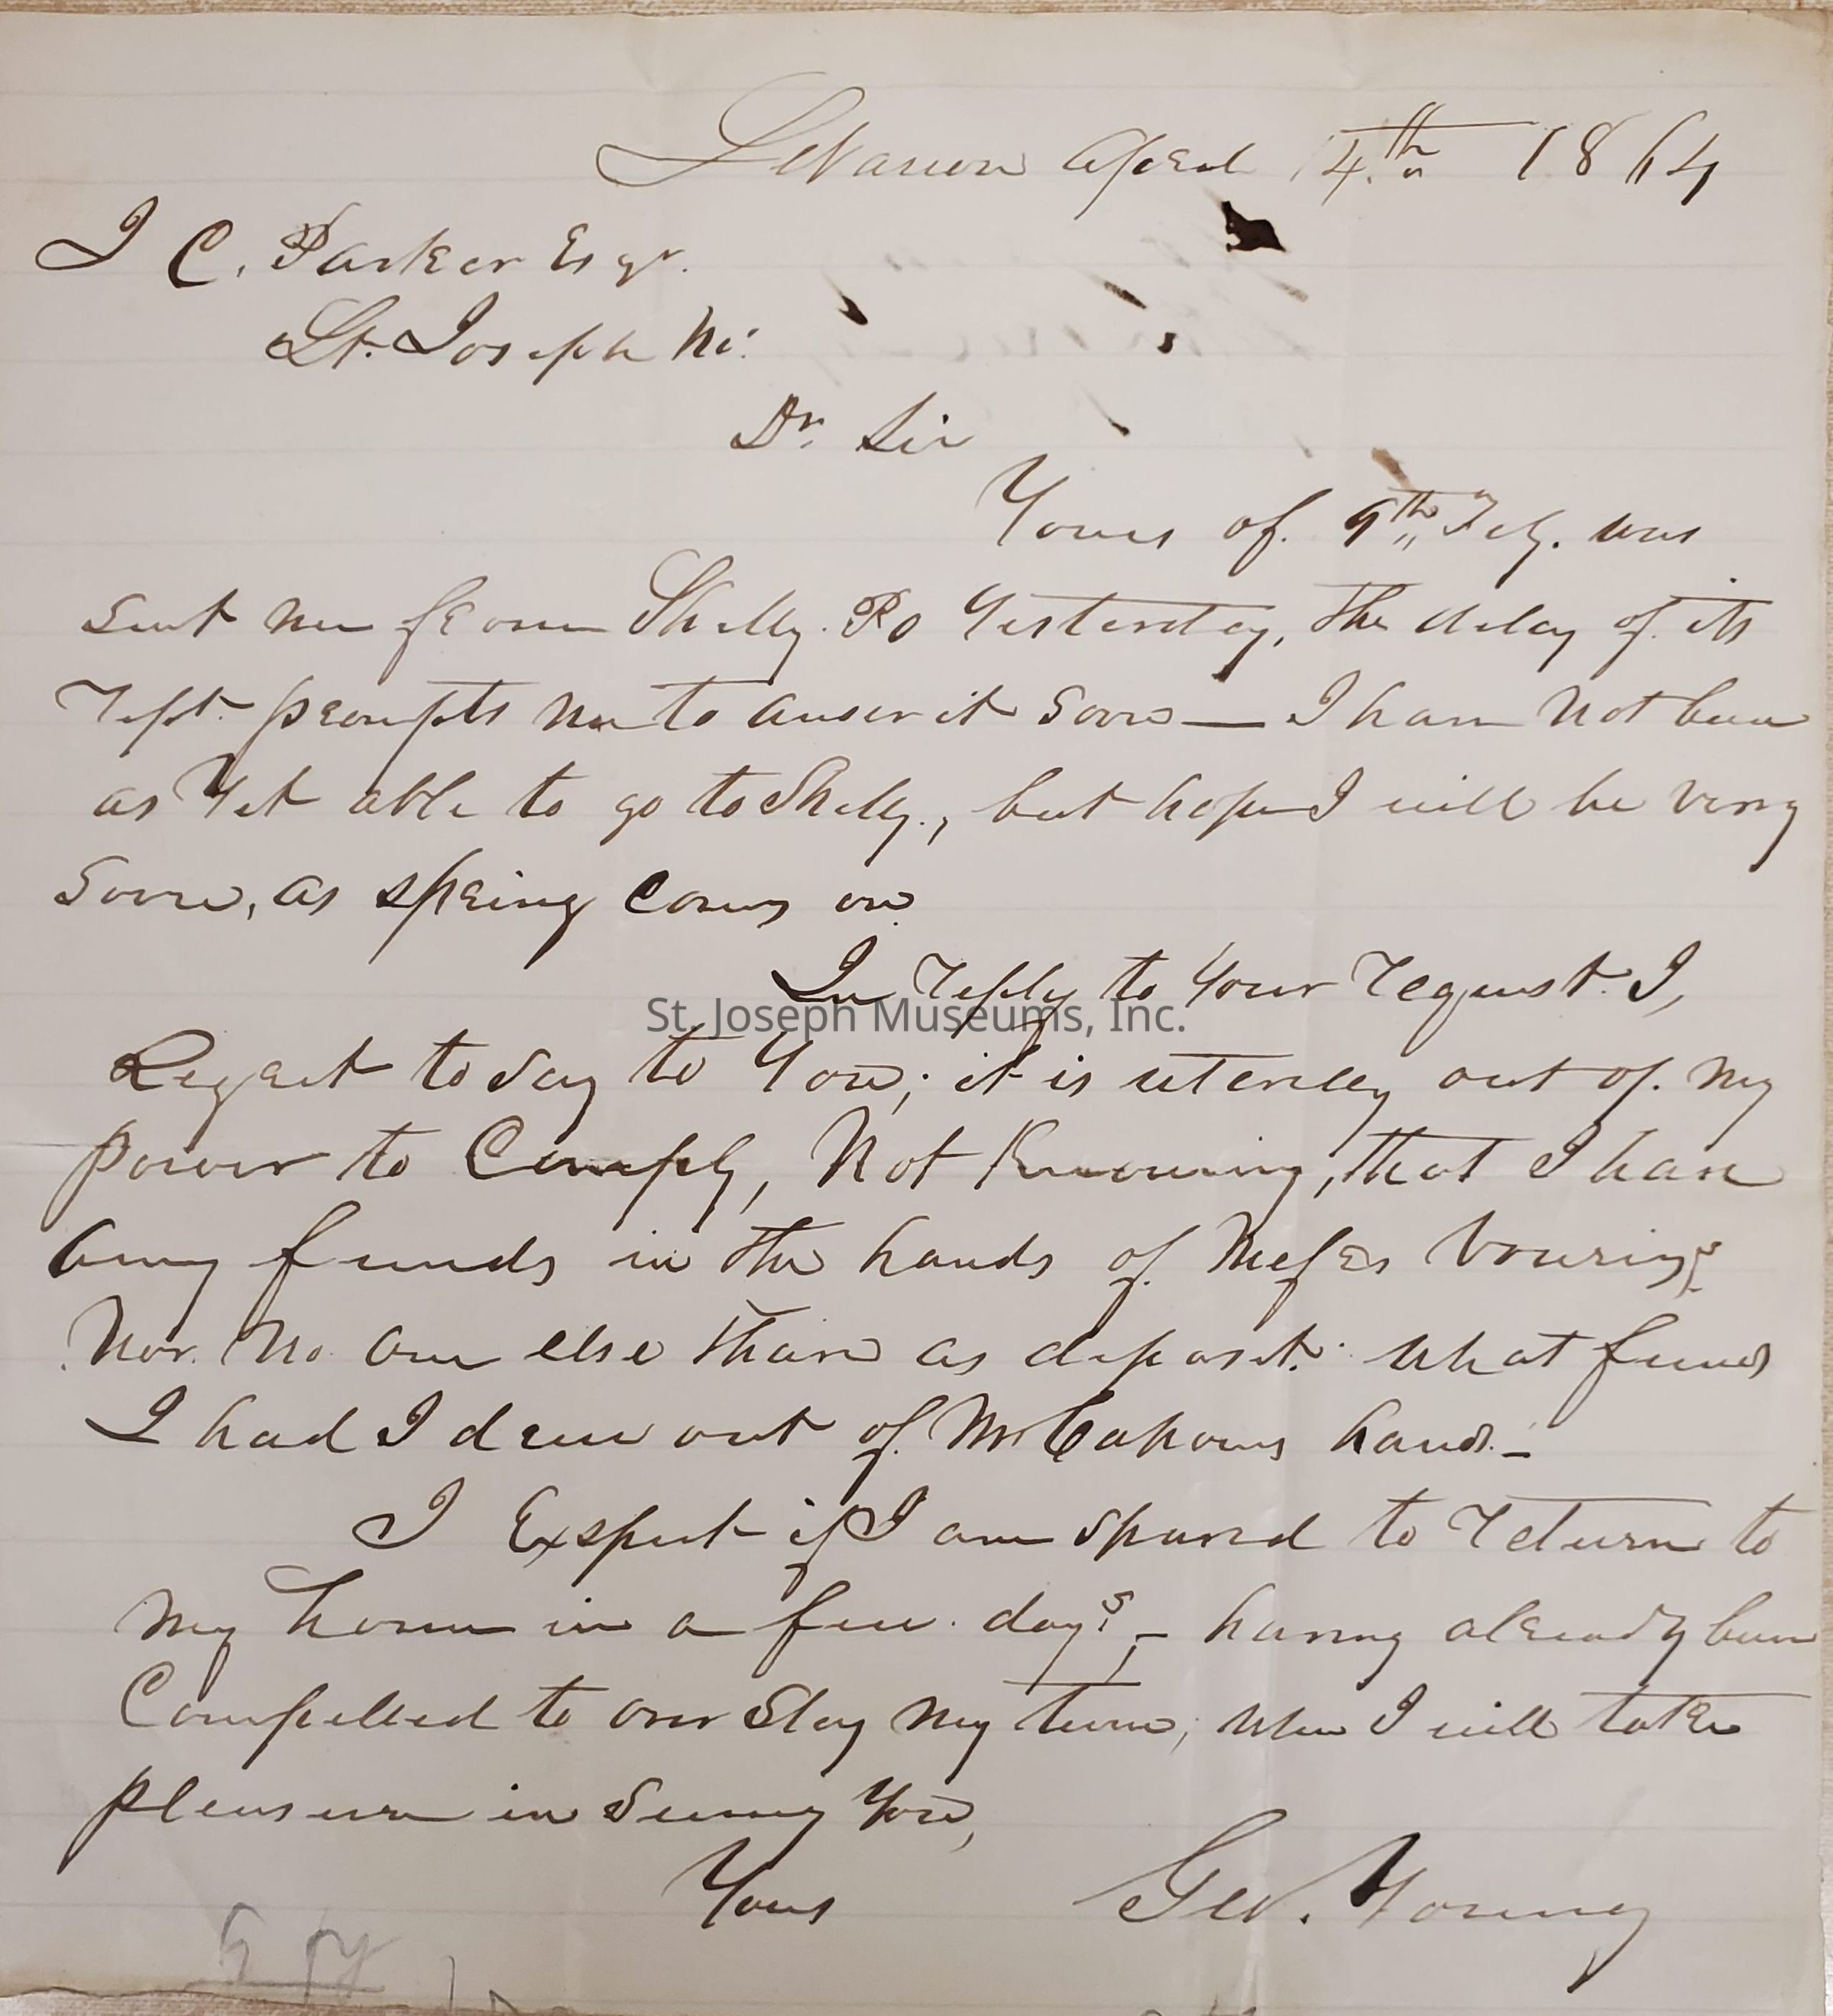 Lebanon April 14th 1864
I C. Parker Esqr.
St. Joseph Mo:
Dr. Sir
Yours of 9th Feby. was
sent me from Shelby. Po Yesterday, the delay of its
rept. prompts me to answer it soon — I have not been
as Yet able to go to Shelby., but hope I will be very
soon, as spring comes on.
In reply to Your request. I,
Regret to say to You; it is uterley out of my
power to Comply, Not Knowing, that I have
any funds in the hands of Messrs
Nor. No. one else than as deposit: what funds
I had I drew out of Mr Cahouns hands. —
I Expect if I am spared to return to
my home in a few days, — having already been
Compelled to over Stay my time; when I will take
pleasure in seeing You,
Yours Geo. Young
St. Joseph Museums, Inc.